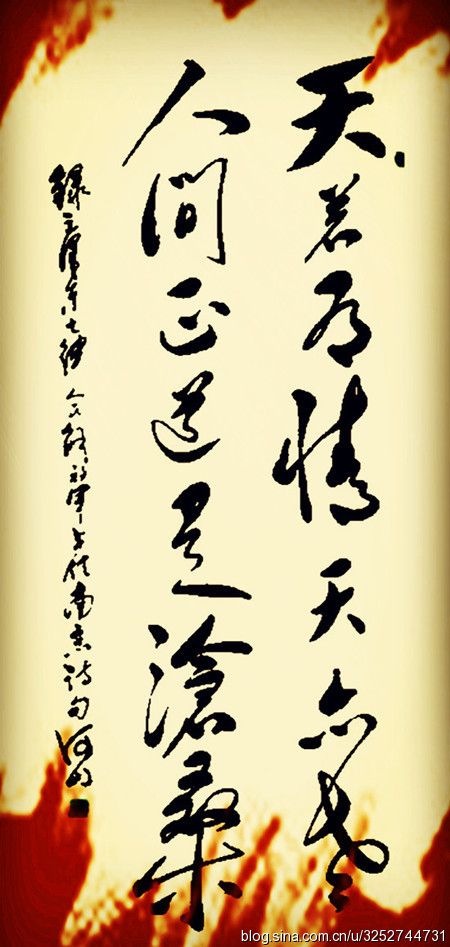 天若有情天亦老
人間正道是滄桑
錄毛澤東七律 人民解放軍占領南京詩句
blog.sina.com.cn/u/3252744731